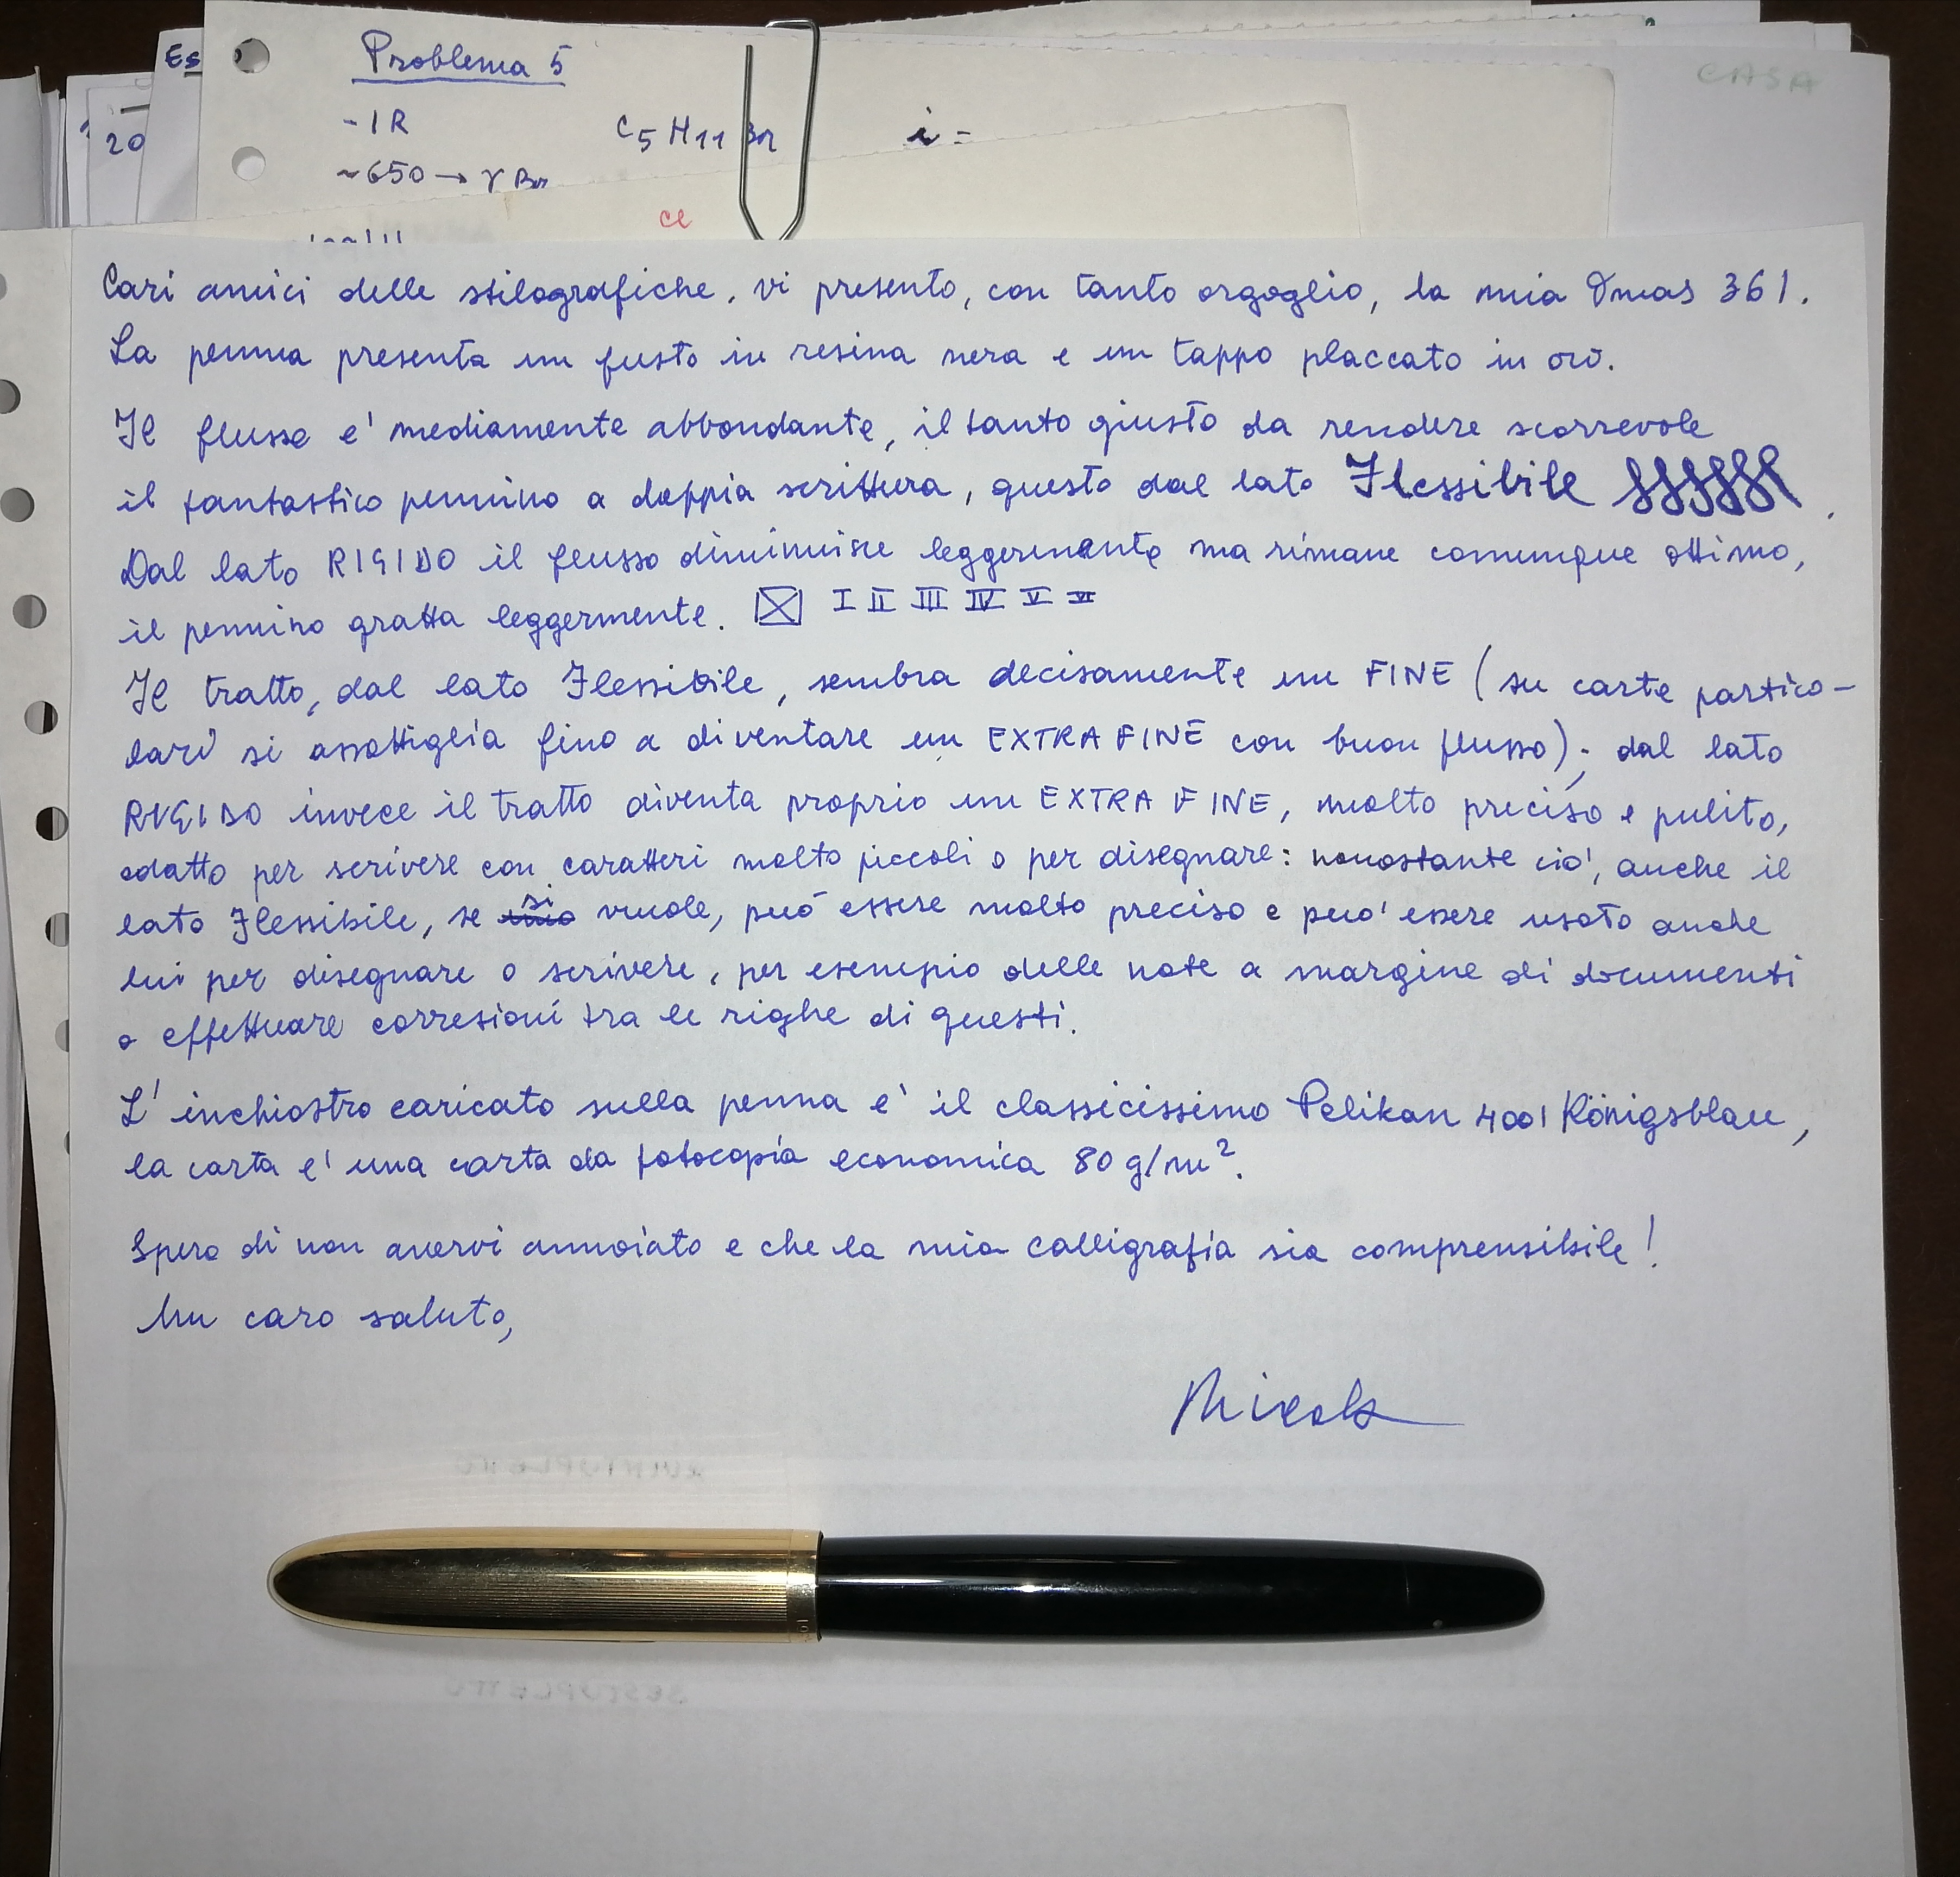 Es
Problema 5
- IR
C5H11Br
i =
20
~650 → γ Br
ce
CASA
Cari amici delle stilografiche, vi presento, con tanto orgoglio, la mia Omas 361.
La penna presenta un fusto in resina nera e un tappo placcato in oro.
Il flusso e' mediamente abbondante, il tanto giusto da rendere scorrevole
il fantastico pennino a doppia scrittura, questo dal lato Flessibile
Dal lato RIGIDO il flusso diminuisce leggermente ma rimane comunque ottimo,
il pennino gratta leggermente. I II III IV V VI
Il tratto, dal lato Flessibile, sembra decisamente un FINE (su carte partico-
lari si assottiglia fino a diventare un EXTRA FINE con buon flusso); dal lato
RIGIDO invece il tratto diventa proprio un EXTRA FINE, molto preciso e pulito,
adatto per scrivere con caratteri molto piccoli o per disegnare: nonostante cio', anche il
lato Flessibile, se si vuole, può essere molto preciso e puo' essere usato anche
lui per disegnare o scrivere, per esempio delle note a margine di documenti
o effettuare corresioni tra le righe di questi.
L'inchiostro caricato sulla penna e' il classicissimo Pelikan 4001 Königsblau,
la carta e' una carta da fotocopia economica 80 g/m².
Spero di non avervi annoiato e che la mia calligrafia sia comprensibile!
Un caro saluto,
Nicola
QUINTUPLETTO
SESTUPLETTO